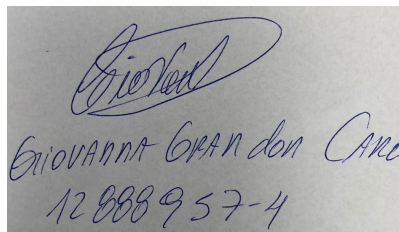 Giovanna Grandon
12888957-4